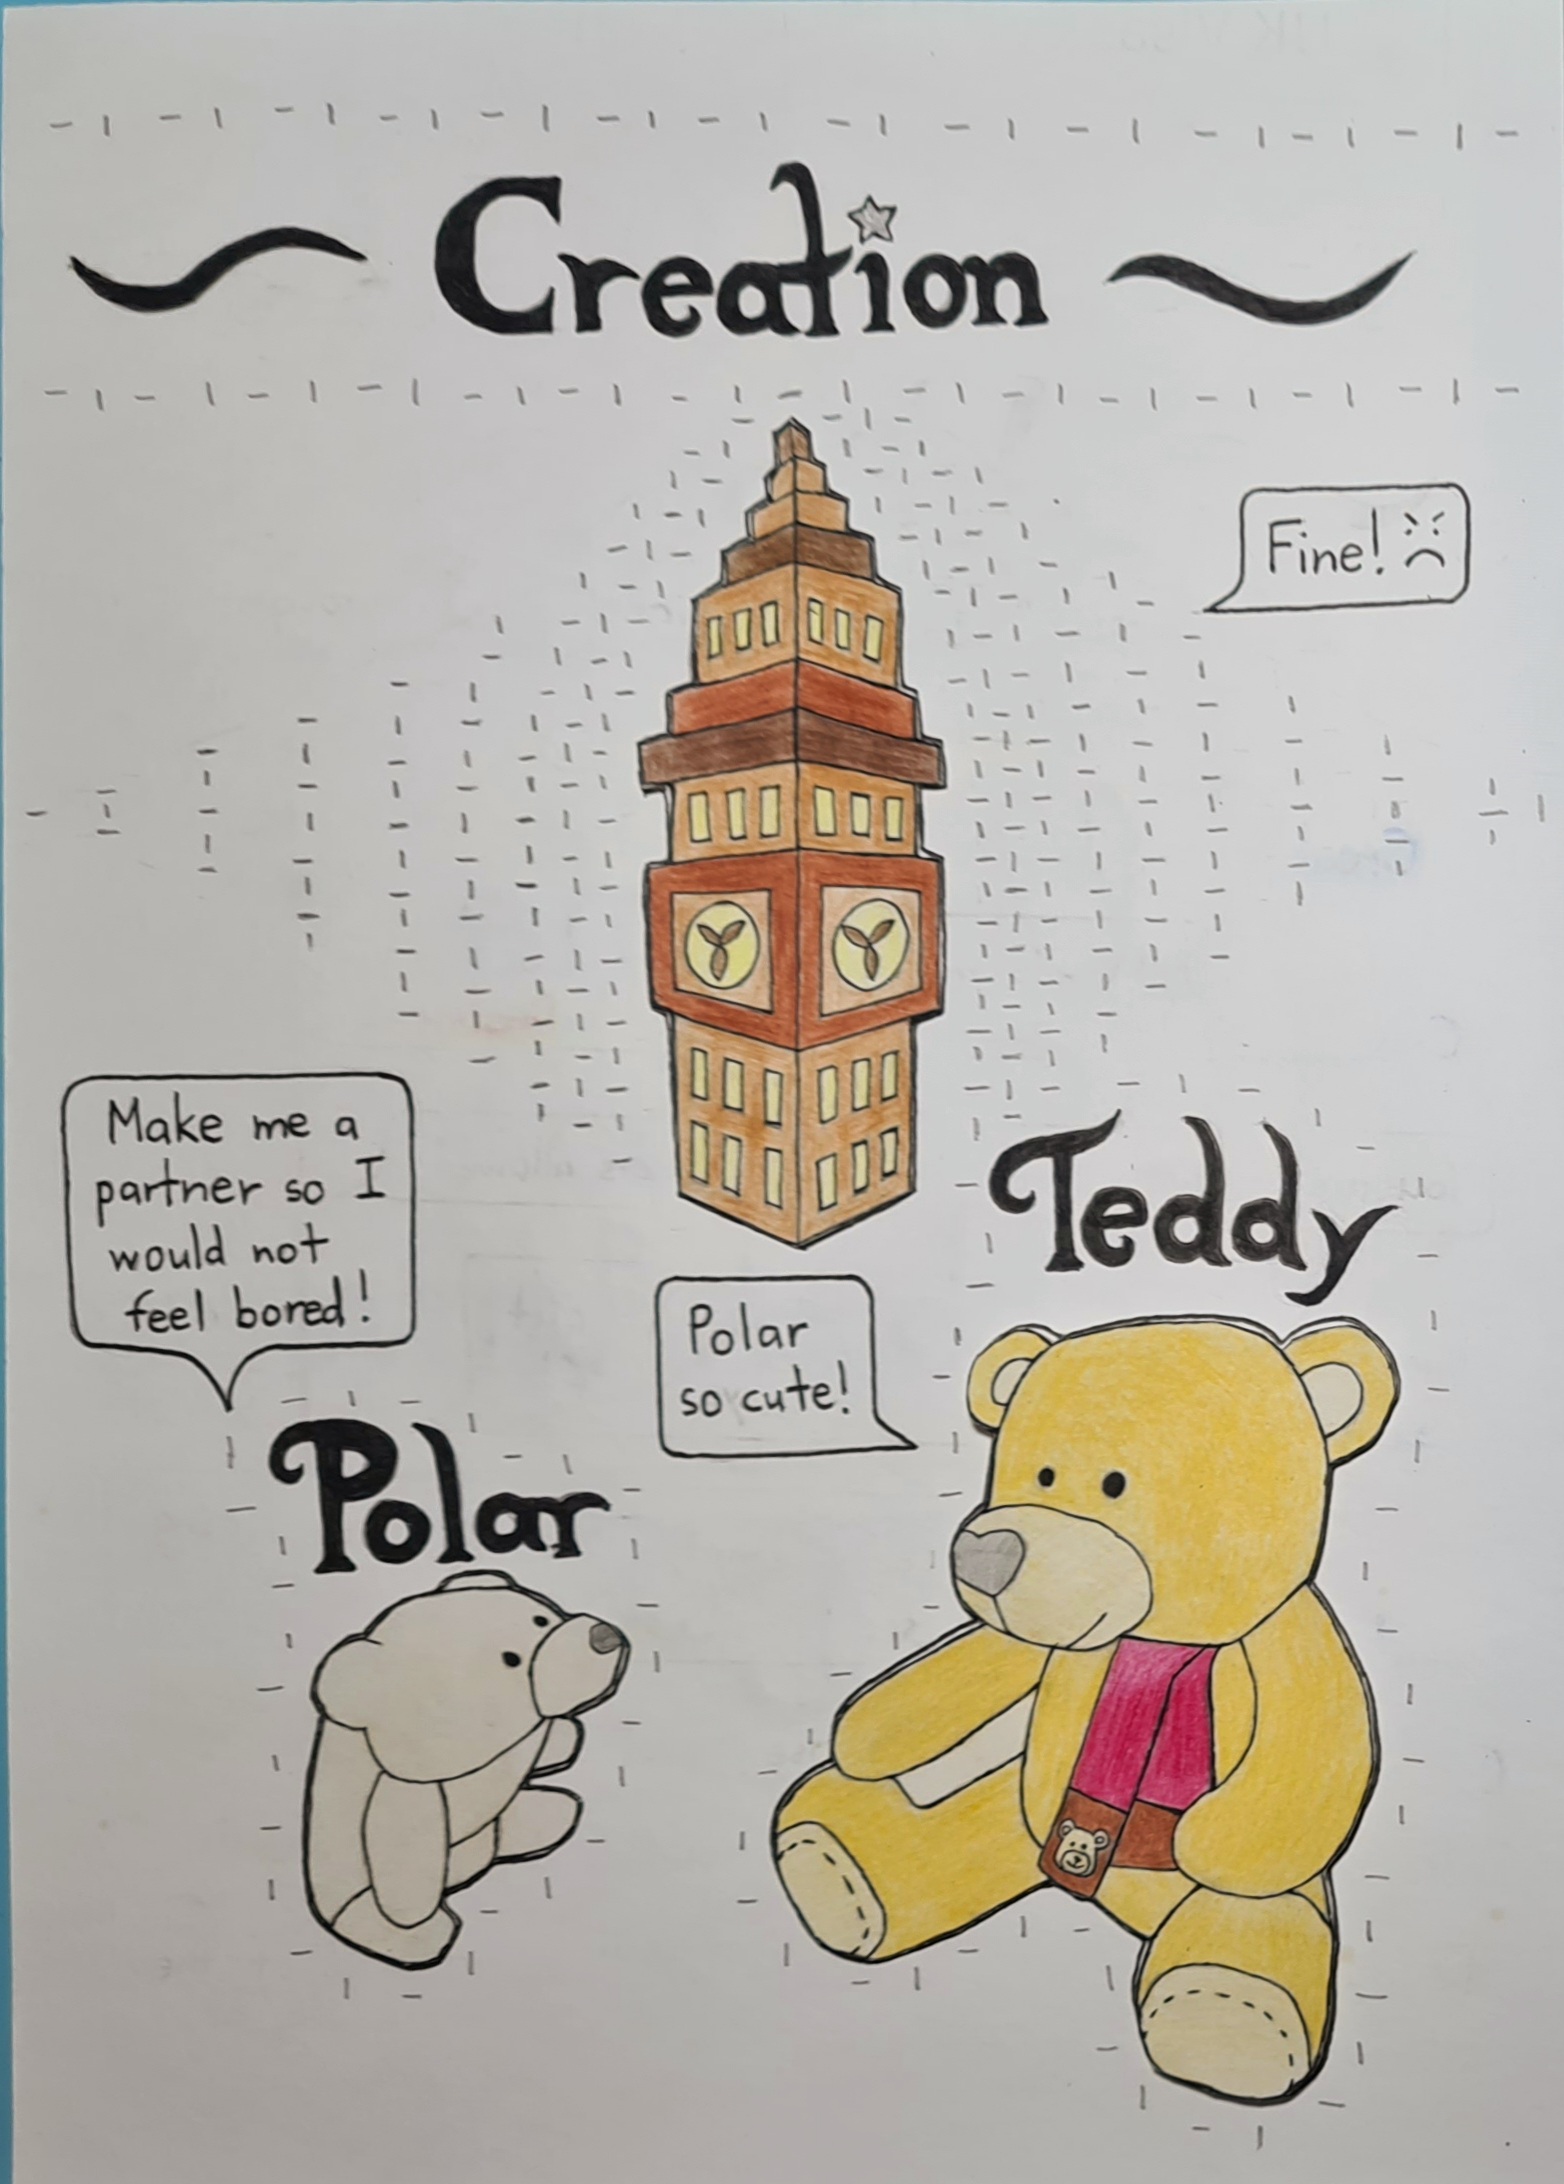 Creation
Fine!
Make me a
partner so I
would not
feel bored!
Teddy
Polar
so cute!
Polar